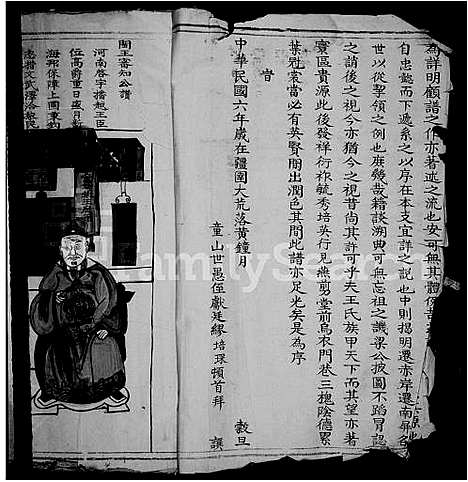 為詳明顧譜之作亦著述之流也安可無其體例
自忠懿而下遞系之以存在本支宜詳之說也中則揭明遷赤岸遷南屏
世以從擧領之例也庶幾哉籍談溯典可無忘祖之譏梁公披圖不蹈冒認
之誚後之視今亦猶今之視昔尚其許可乎夫王氏族甲天下而其望亦著
寰區貴源此後發祥衍祚毓秀培英行見燕剪堂前烏衣門巷三槐陰德累
葉冠裳當必有英賢朋出潤色其間此譜亦足光矣是為序
旹
中華民國六年歲在疆圉大荒落黃鐘月 穀旦
童山世愚侄獻廷繆培琛頓首拜 譔
閩王審知公讚
河南啓宇搭題王臣
位高爵重日盛月新
海邦保障上國東鈞
忠猶文武澤洽黎民
FamilySearch